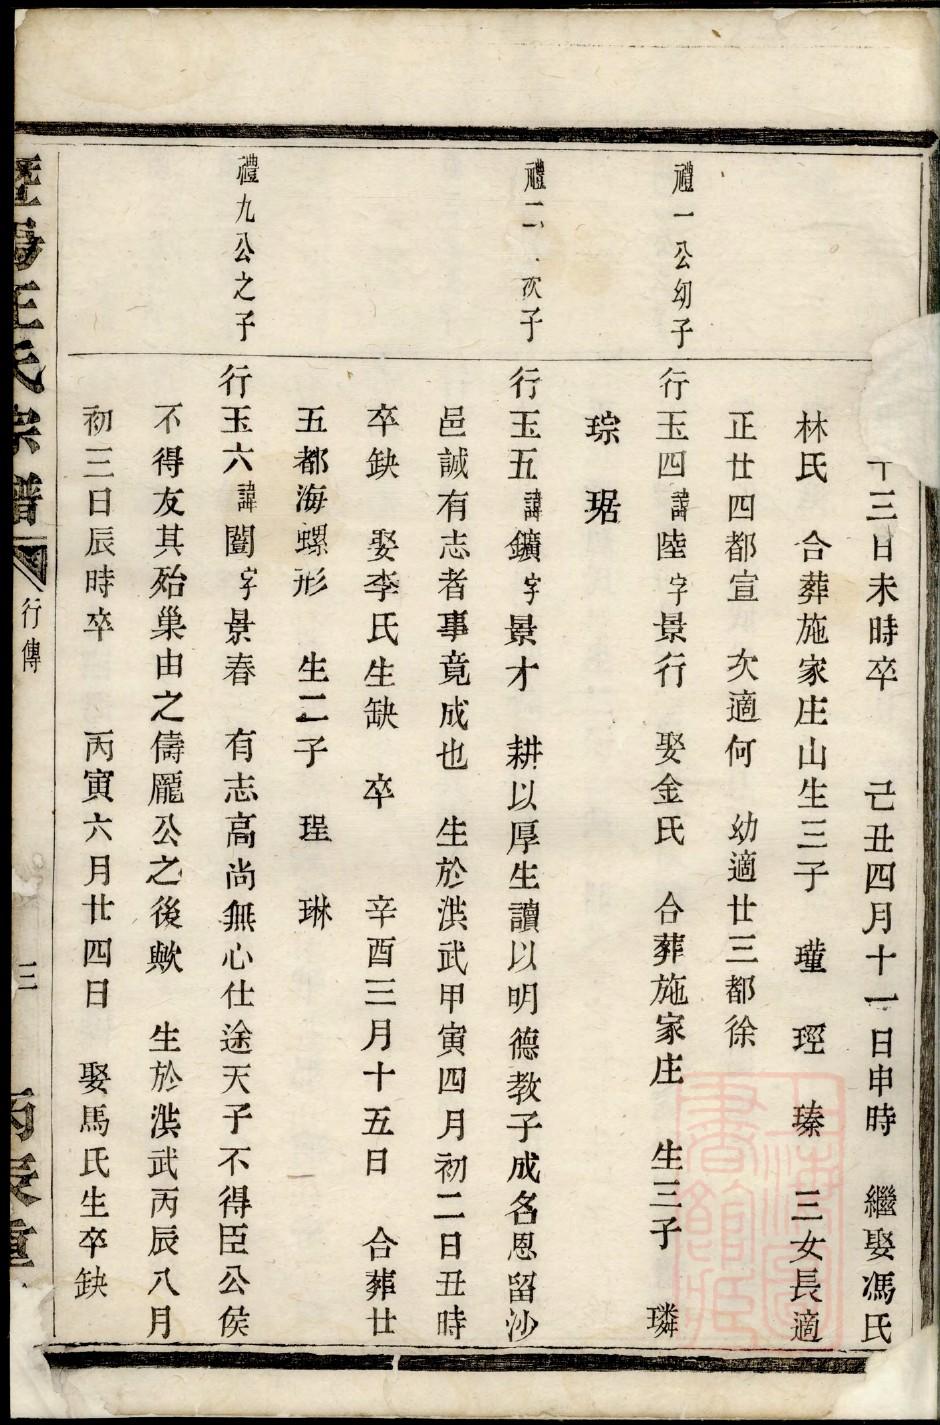 三日未時卒　己丑四月十一日申時　繼娶馮氏
林氏　合葬施家庄山生三子　瓘　瑶　瑧　三女長適
正廿四都宣　次適何　幼適廿三都徐
禮一公幼子
行玉四諱陸字景行　娶金氏　合葬施家庄　生三子　璘
琮　琚
禮二　次子
行玉五諱鑛字景才　耕以厚生讀以明德教子成名恩留沙
邑誠有志者事竟成也　生於洪武甲寅四月初二日丑時
卒缺　娶李氏生缺　卒　辛酉三月十五日　合葬廿
五都海螺形　生二子　珵　琳
禮九公之子
行玉六諱闓字景春　有志高尚無心仕途天子不得臣公侯
不得友其殆巢由之儔龐公之後歟　生於洪武丙辰八月
初三日辰時卒　丙寅六月廿四日　娶馬氏生卒缺
暨陽王氏宗譜　行傳　三　丙辰重
上海圖書館藏